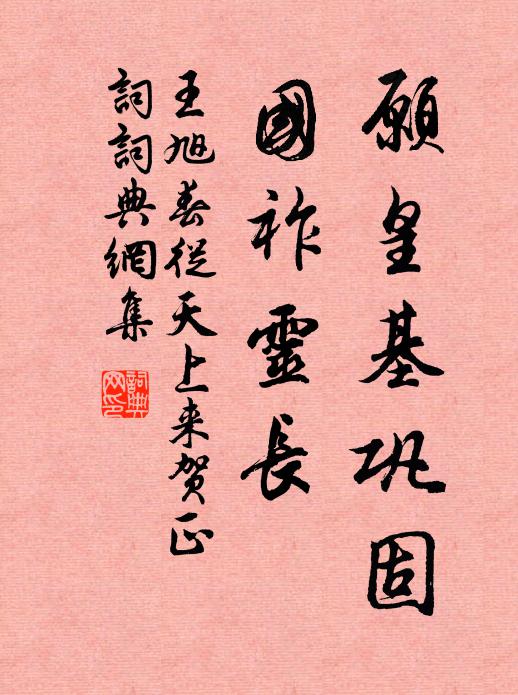 願皇基巩固
國祚靈長
王旭春從天上来賀正
詞詞典網集
詞典
网印